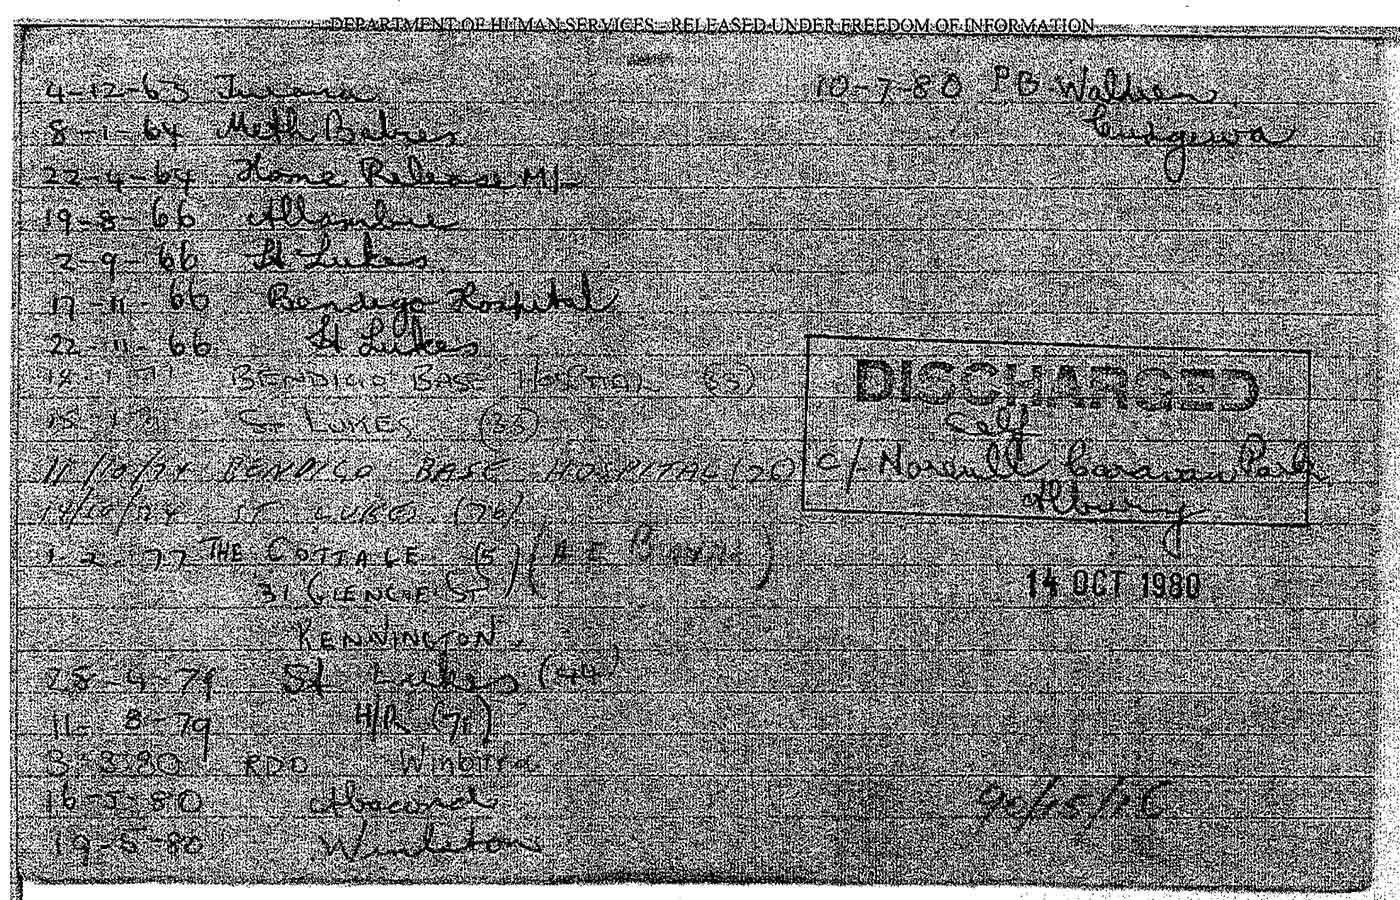 DEPARTMENT OF HUMAN SERVICES RELEASED UNDER FREEDOM OF INFORMATION
4-12-63 Turana
8-1-64 Meth Babies
22-4-64 Home Release M/-
19-8-66 Allambie
2-9-66 St Lukes
17-11-66 Bendigo Hospital
22-11-66 St Lukes
14-1-71 BENDIGO BASE HOSPITAL (33)
15-1-71 ST LUKES (33)
11/10/74 BENDIGO BASE HOSPITAL (26)
14/10/74 ST LUKES (26)
1-2-77 THE COTTAGE (5) (A.E.
31 ST
KENNINGTON
28-4-79 St Lukes (44)
11-8-79 H/R (71)
3-3-80 RDO Winbirra
16-5-80 Abscond
19-5-80 Winlaton
10-7-80 PB
Cudgewa
DISCHARGED
Self
c/- Caravan Park
Albury
14 OCT 1980